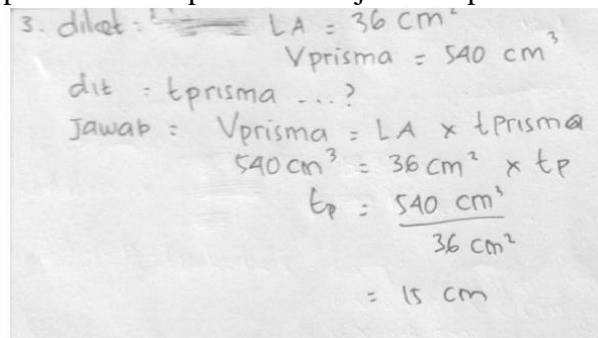 3. diket : LA = 36 cm²
Vprisma = 540 cm³
dit : tprisma ...?
Jawab : Vprisma = LA x tprisma
540 cm³ = 36 cm² x tp
tp = 540 cm³
36 cm²
= 15 cm